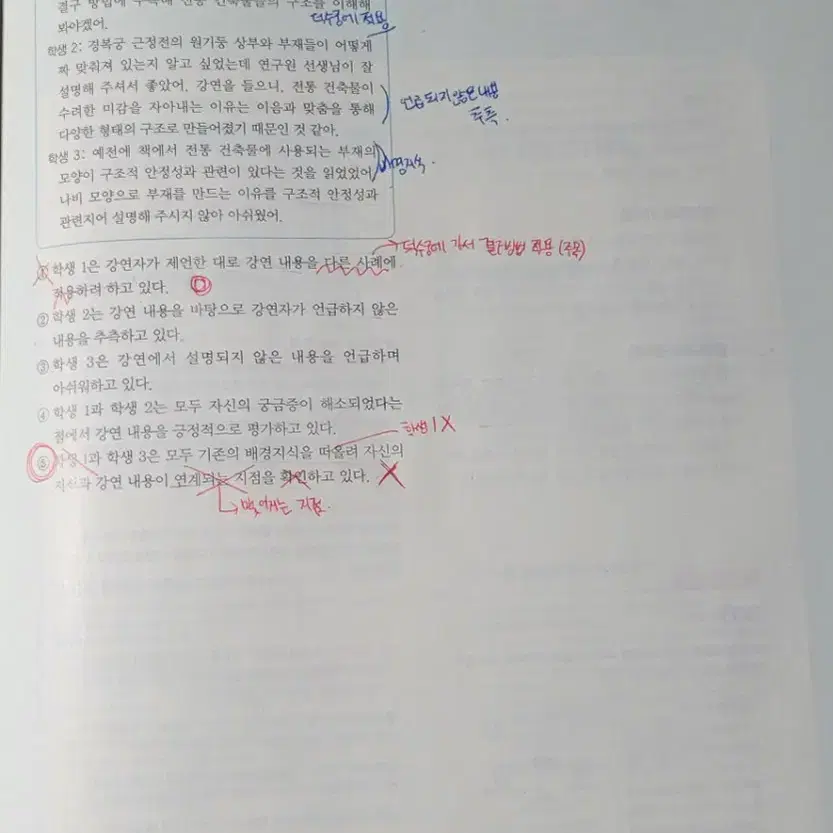 결구 방법에 주목해 전통 건축물들의 구조를 이해해
봐야겠어.
덕수궁에 적용
학생 2: 경복궁 근정전의 원기둥 상부와 부재들이 어떻게
짜 맞춰져 있는지 알고 싶었는데 연구원 선생님이 잘
설명해 주셔서 좋았어. 강연을 들으니, 전통 건축물이
수려한 미감을 자아내는 이유는 이음과 맞춤을 통해
다양한 형태의 구조로 만들어졌기 때문인 것 같아.
언급되지 않은 내용
추측.
학생 3: 예전에 책에서 전통 건축물에 사용되는 부재의
모양이 구조적 안정성과 관련이 있다는 것을 읽었었어.
나비 모양으로 부재를 만드는 이유를 구조적 안정성과
관련지어 설명해 주시지 않아 아쉬웠어.
배경지식.
덕수궁에 가서 결구방법 적용 (주목)
① 학생 1은 강연자가 제언한 대로 강연 내용을 다른 사례에
적용하려 하고 있다.
② 학생 2는 강연 내용을 바탕으로 강연자가 언급하지 않은
내용을 추측하고 있다.
③ 학생 3은 강연에서 설명되지 않은 내용을 언급하며
아쉬워하고 있다.
④ 학생 1과 학생 2는 모두 자신의 궁금증이 해소되었다는
점에서 강연 내용을 긍정적으로 평가하고 있다.
학생 1 X
⑤ 학생 1과 학생 3은 모두 기존의 배경지식을 떠올려 자신의
지식과 강연 내용이 연계되는 지점을 확인하고 있다.